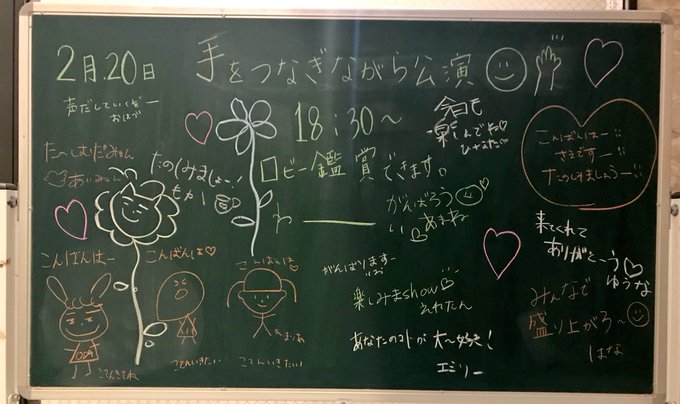 2月.20日 手をつなぎながら公演
声だしていくぞー
おはづ
18:30〜
ロビー鑑賞できます。
わー
今日も
楽しんでね♡
ひなた
こんばんはー!!
さえですー!!
たのしみましょうー!!
たのしみましょー!
もか
あいみゃん
がんばろう
い
来てくれて
ありがと〜う♡
ゆうな
こんばんはー
こんばんは♡
こんばんは♡
がんばりますー
りお
楽しみまshow♡
えれたん
みんなで
盛り上がろ〜
はな
あなたのコトが大〜好き!
エミリー
ODA
まりあ
こてんいきたい!